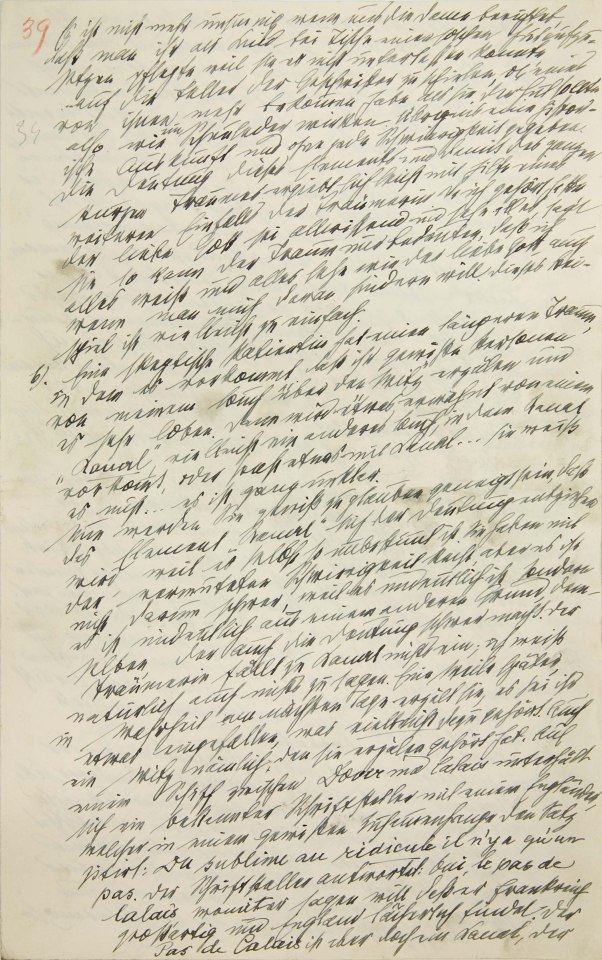 39
34
Es ist nicht mehr unsinnig, wenn uns die Dame berichtet,
daß man ihr als Kind bei Tische einen solchen Hut aufzu-
setzen pflegte, weil sie es nicht unterlassen konnte
auf die Teller der Geschwister zu schielen, ob eines
von ihnen mehr bekommen habe als sie. Der Hut sollte
also wie ein Scheuleder wirken. Übrigens eine histor-
ische Auskunft und ohne jede Schwierigkeit gegeben.
Die Deutung dieses Elements und damit des ganzen
kurzen Traumes ergiebt sich leicht mit Hilfe eines
weiteren Einfalls der Träumerin. Da ich gehört hatte
der liebe Gott sei allwissend und sehe alles, sagt
sie, so kann der Traum nur bedeuten, daß ich
alles weiß und alles sehe wie der liebe Gott auch
wenn man mich daran hindern will. Dieses Bei-
spiel ist vielleicht zu einfach.
b). Eine skeptische Patientin hat einen längeren Traum,
in dem es vorkommt, daß ihr gewisse Personen
von meinem Buch über den „Witz" erzälen und
es sehr loben. Dann wird etwas erwähnt von einem
„Kanal", vielleicht ein anderes Buch, in dem Kanal
vorkomt, oder sonst etwas mit Kanal... sie weiß
es nicht... es ist ganz unklar.
Nun werden Sie gewiß zu glauben geneigt sein, daß
das Element „Kanal" sich der Deutung entziehen
wird, weil es selbst so unbestimmt ist. Sie haben mit
der vermuteten Schwierigkeit Recht aber es ist
nicht darum schwer, weil es undeutlich ist, sondern
es ist undeutlich aus einem anderen Grund, dem-
selben, der auch die Deutung schwer macht. Der
Träumerin fällt zu Kanal nichts ein; ich weiß
natürlich auch nichts zu sagen. Eine Weile später,
in Wahrheit am nächsten Tage erzält sie, es sei ihr
etwas eingefallen, was vielleicht dazu gehört. Auch
ein Witz nämlich, den sie erzälen gehört hat. Auf
einem Schiff zwischen Dover und Calais unterhält
sich ein bekannter Schriftsteller mit einem Engländer,
welcher in einem gewissen Zusammenhange den Satz
zitirt: Du sublime au ridicule il n'y a qu'un
pas. Der Schriftsteller antwortet: Oui, le pas de
Calais, womit er sagen will, daß er Frankreich
großartig und England lächerlich findet. Der
Pas de Calais ist aber doch ein Kanal, der